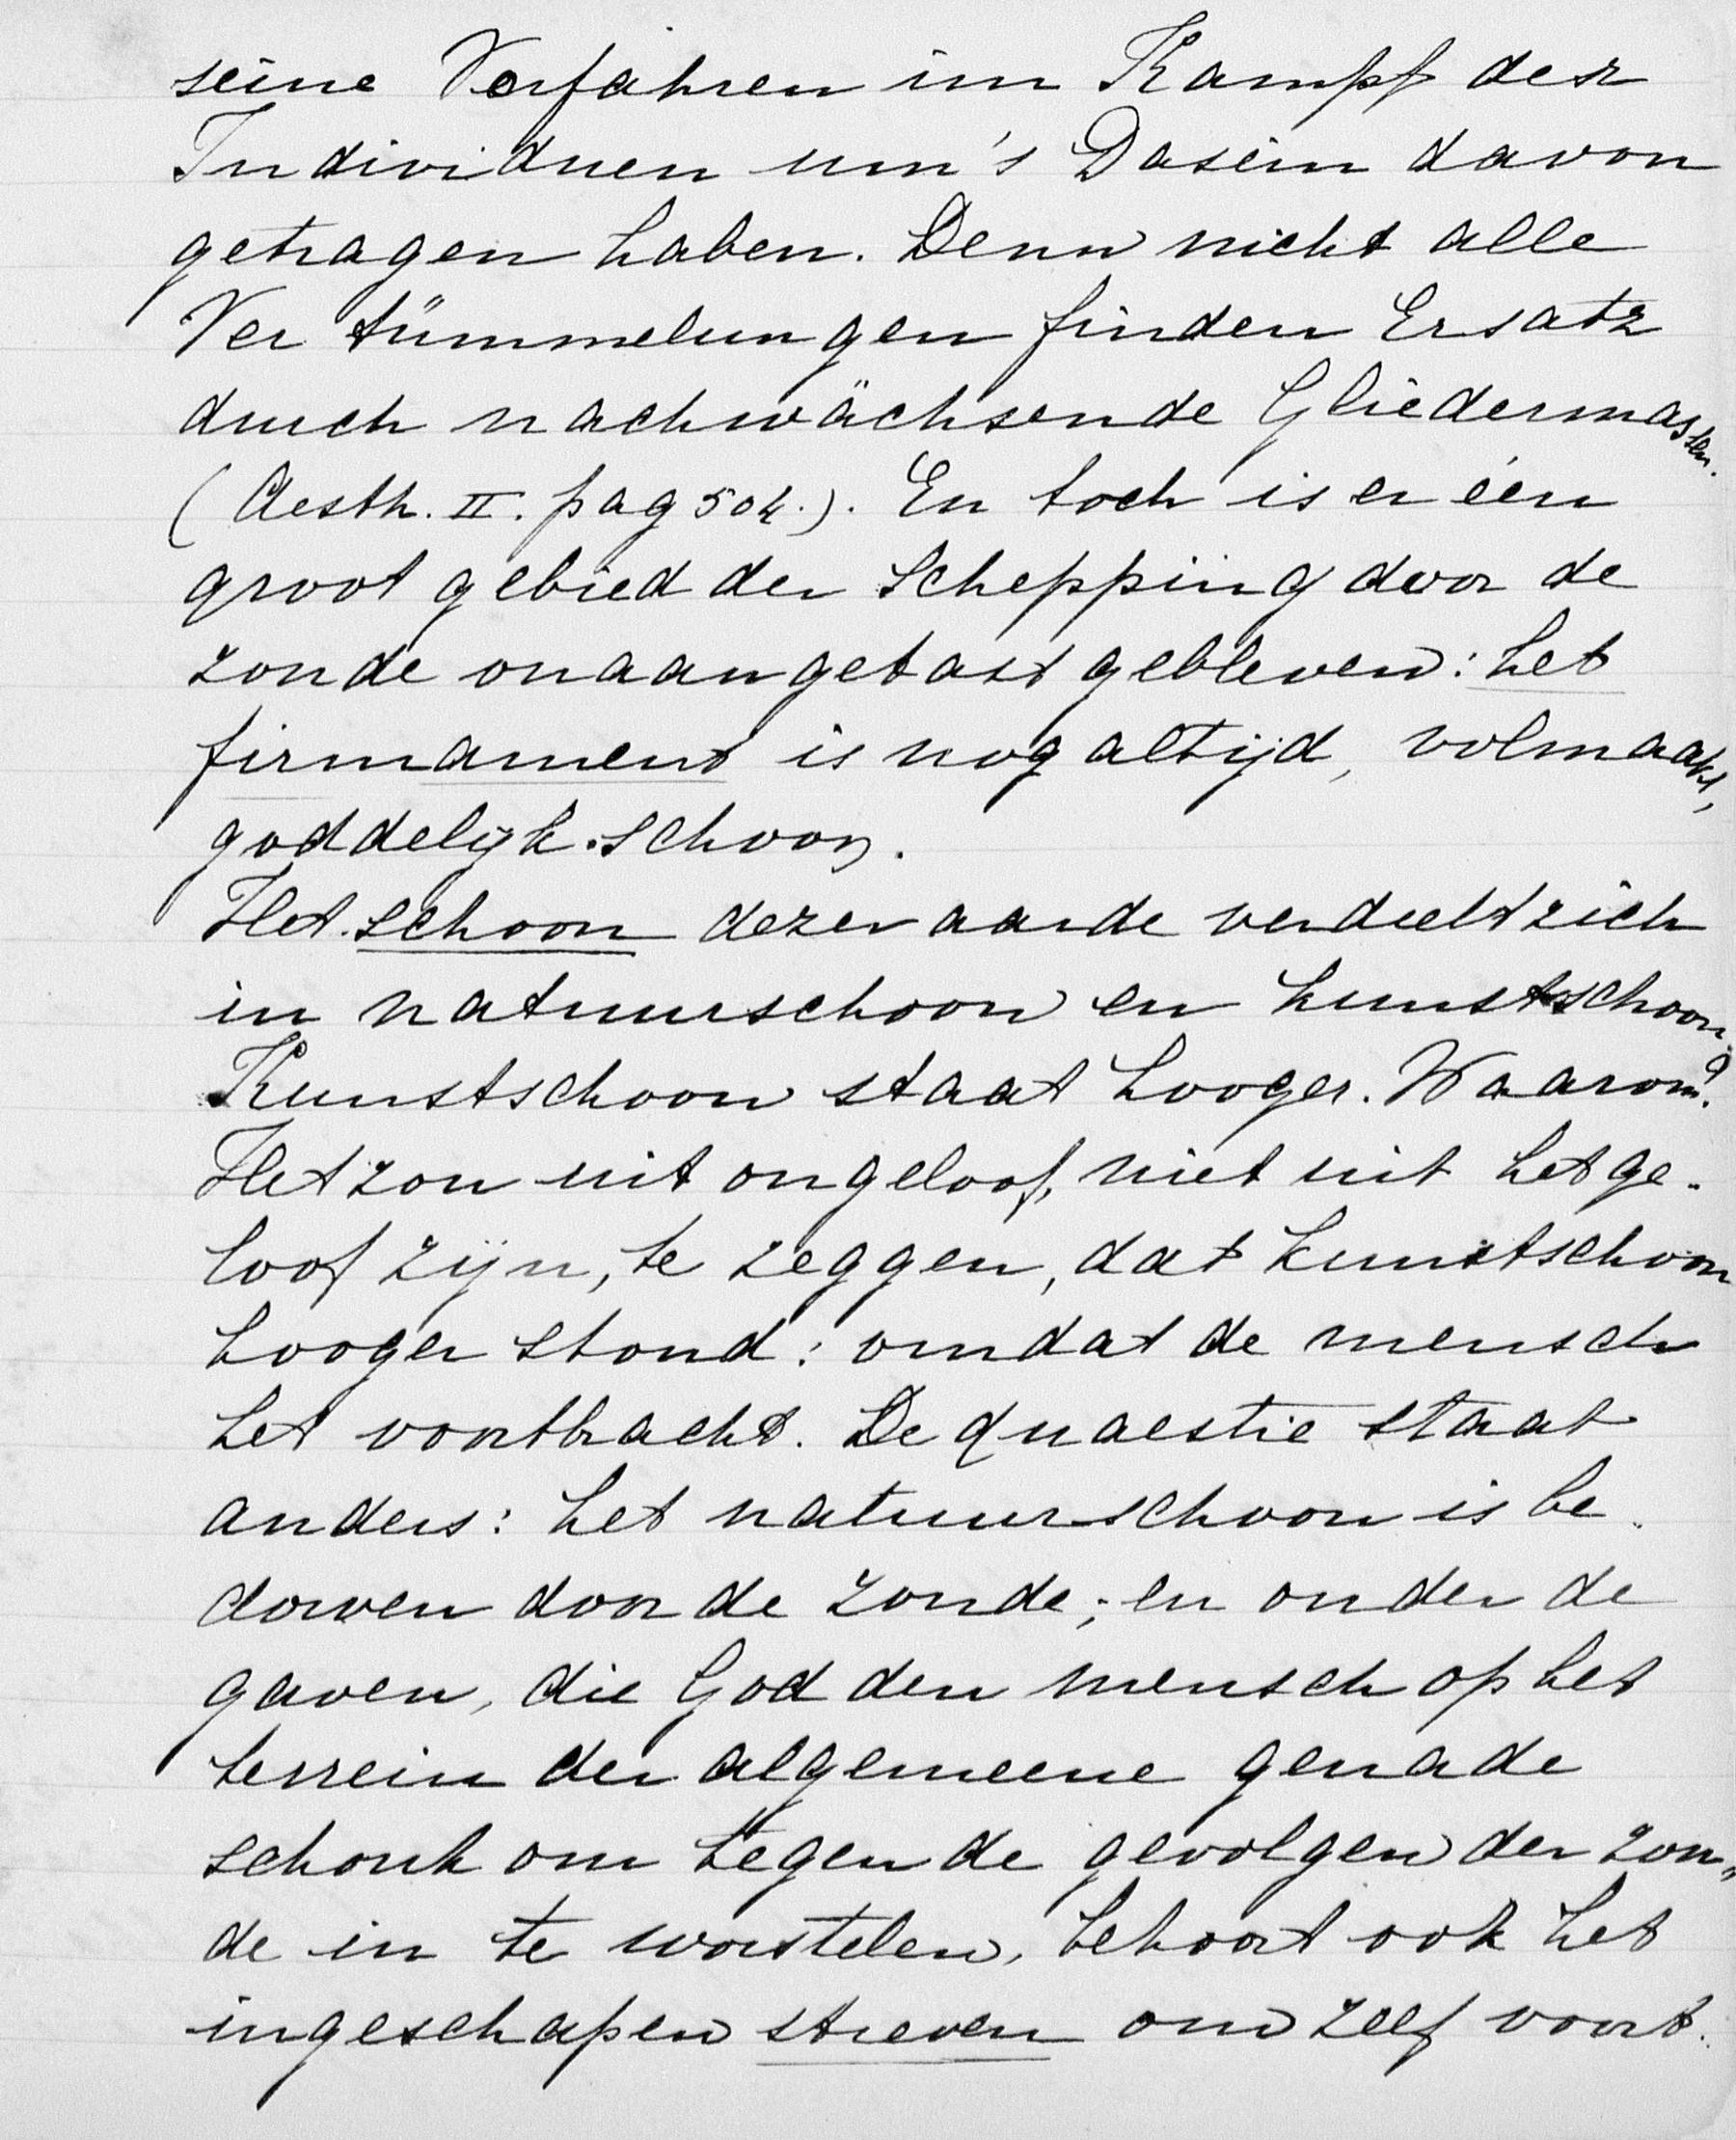 seine Vorfahren im Kampf der
Individuen um's Dasein davon
getragen haben. Denn nicht alle
Ver tümmelungen finden Ersatz
durch nachwächsende Gliedermassen.
(Aesth. II. pag 504.). En toch is er één
groot gebied der schepping door de
zonde onaangetast gebleven: het
firmament is nog altijd, volmaakt,
goddelijk schoon.
Het schoon dezer aarde verdeelt zich
in natuurschoon en kunstschoon.
Kunstschoon staat hooger. Waarom?
Het zou uit ongeloof, niet uit het ge-
loof zijn, te zeggen, dat kunstschoon
hooger stond: omdat de mensch
het voortbracht. De quaestie staat
anders: het natuurschoon is be-
dorven door de zonde; en onder de
gaven, die God den mensch op het
terrein der algemeene genade
schonk om tegen de gevolgen der zon-
de in te worstelen, behoort ook het
ingeschapen streven om zelf voort-